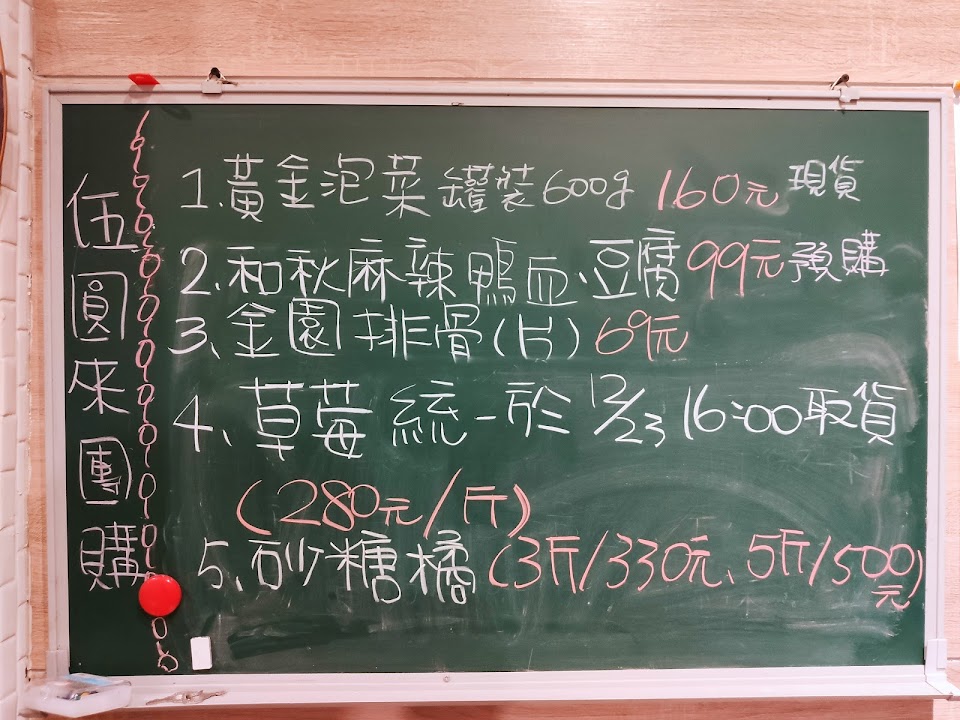 伍圓來團購
1.黃金泡菜罐裝600g 160元 現貨
2.和秋麻辣鴨血、豆腐99元預購
3、金園排骨(片)69元
4、草莓統一於12/23 16:00取貨
(280元/斤)
5、砂糖橘(3斤/330元、5斤/500元)